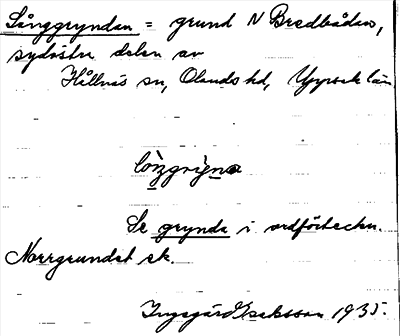 Långgryndan = grund N Bredbådan,
sydöstra delen av
Hållnäs sn, Olands hd, Uppsala län
lòŋgrỳna
Se grynda i ordförteckn.
Norrgrundet ek.
Ingegärd Eriksson 1935.